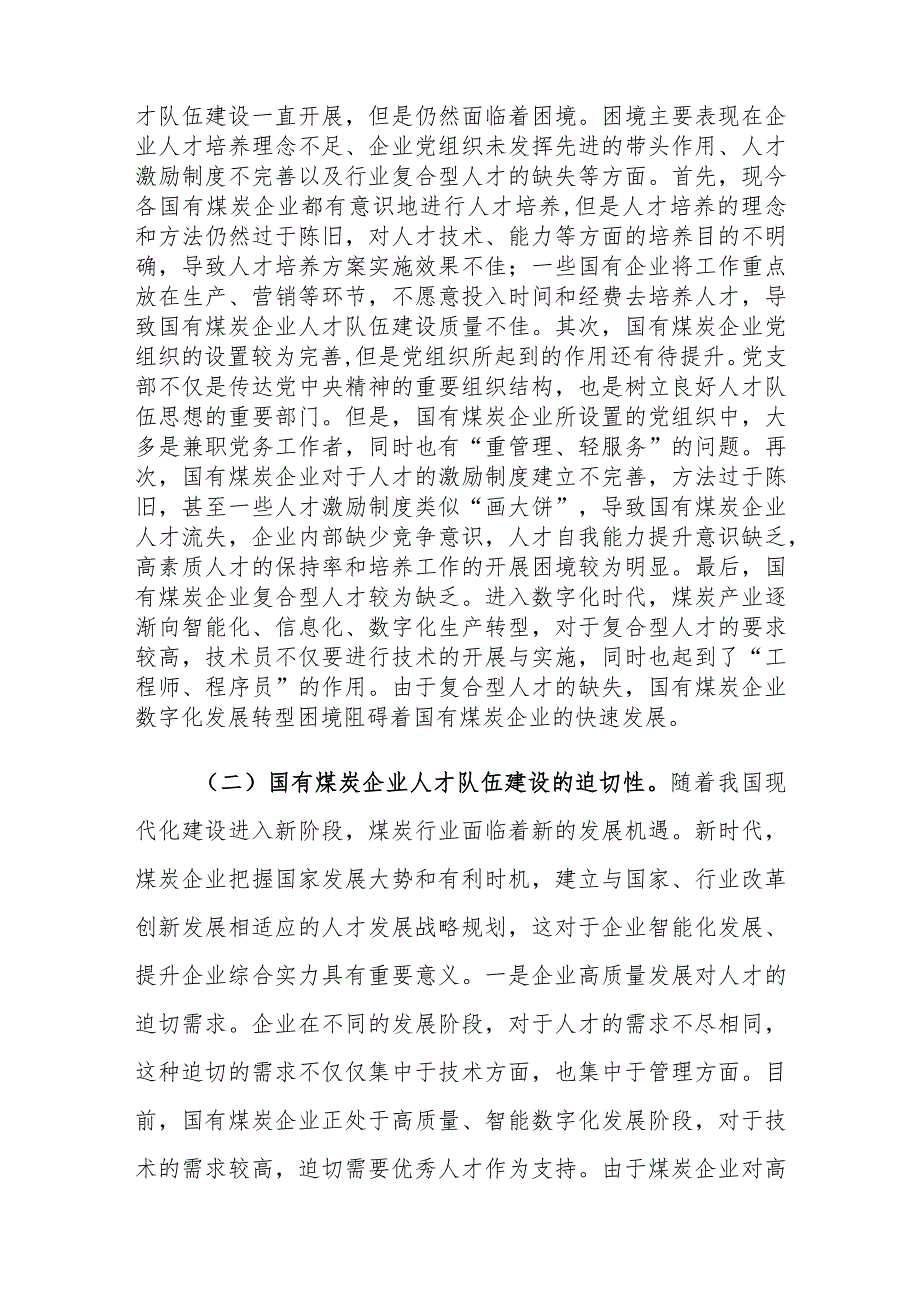 才队伍建设一直开展，但是仍然面临着困境。困境主要表现在企
业人才培养理念不足、企业党组织未发挥先进的带头作用、人才
激励制度不完善以及行业复合型人才的缺失等方面。首先，现今
各国有煤炭企业都有意识地进行人才培养,但是人才培养的理念
和方法仍然过于陈旧，对人才技术、能力等方面的培养目的不明
确，导致人才培养方案实施效果不佳；一些国有企业将工作重点
放在生产、营销等环节，不愿意投入时间和经费去培养人才，导
致国有煤炭企业人才队伍建设质量不佳。其次，国有煤炭企业党
组织的设置较为完善,但是党组织所起到的作用还有待提升。党支
部不仅是传达党中央精神的重要组织结构，也是树立良好人才队
伍思想的重要部门。但是，国有煤炭企业所设置的党组织中，大
多是兼职党务工作者，同时也有“重管理、轻服务”的问题。再
次，国有煤炭企业对于人才的激励制度建立不完善，方法过于陈
旧，甚至一些人才激励制度类似“画大饼”，导致国有煤炭企业
人才流失，企业内部缺少竞争意识，人才自我能力提升意识缺乏，
高素质人才的保持率和培养工作的开展困境较为明显。最后，国
有煤炭企业复合型人才较为缺乏。进入数字化时代，煤炭产业逐
渐向智能化、信息化、数字化生产转型，对于复合型人才的要求
较高，技术员不仅要进行技术的开展与实施，同时也起到了“工
程师、程序员”的作用。由于复合型人才的缺失，国有煤炭企业
数字化发展转型困境阻碍着国有煤炭企业的快速发展。
（二）国有煤炭企业人才队伍建设的迫切性。随着我国现
代化建设进入新阶段，煤炭行业面临着新的发展机遇。新时代，
煤炭企业把握国家发展大势和有利时机，建立与国家、行业改革
创新发展相适应的人才发展战略规划，这对于企业智能化发展、
提升企业综合实力具有重要意义。一是企业高质量发展对人才的
迫切需求。企业在不同的发展阶段，对于人才的需求不尽相同，
这种迫切的需求不仅仅集中于技术方面，也集中于管理方面。目
前，国有煤炭企业正处于高质量、智能数字化发展阶段，对于技
术的需求较高，迫切需要优秀人才作为支持。由于煤炭企业对高